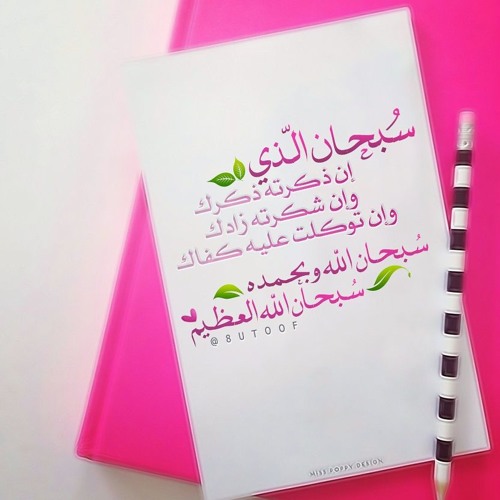 سُبحان الّذي
إن ذكرته ذكرك
وإن شكرته زادك
وان توكلت عليه كفاك
سُبحان الله وبحمده
سُبحان الله العظيم
@8UTOOF
MISS POPPY DESIGN